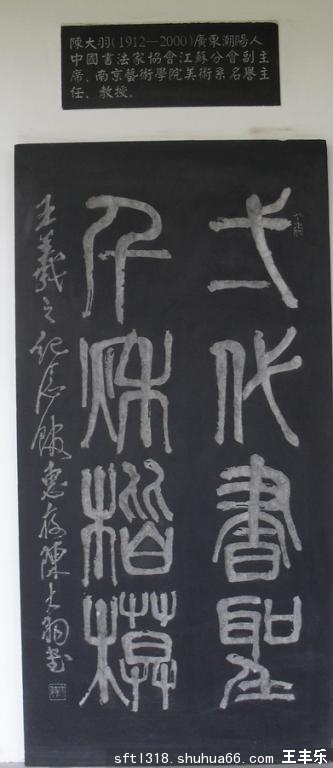 陳大羽(1912—2000)廣東潮陽人
中國書法家協會江蘇分會副主
席、南京藝術學院美術系名譽主
任、教授。
弌代書聖
千秋楷模
王羲之紀念館惠存陳大羽書
sftl318.shuhua66.com 王丰乐